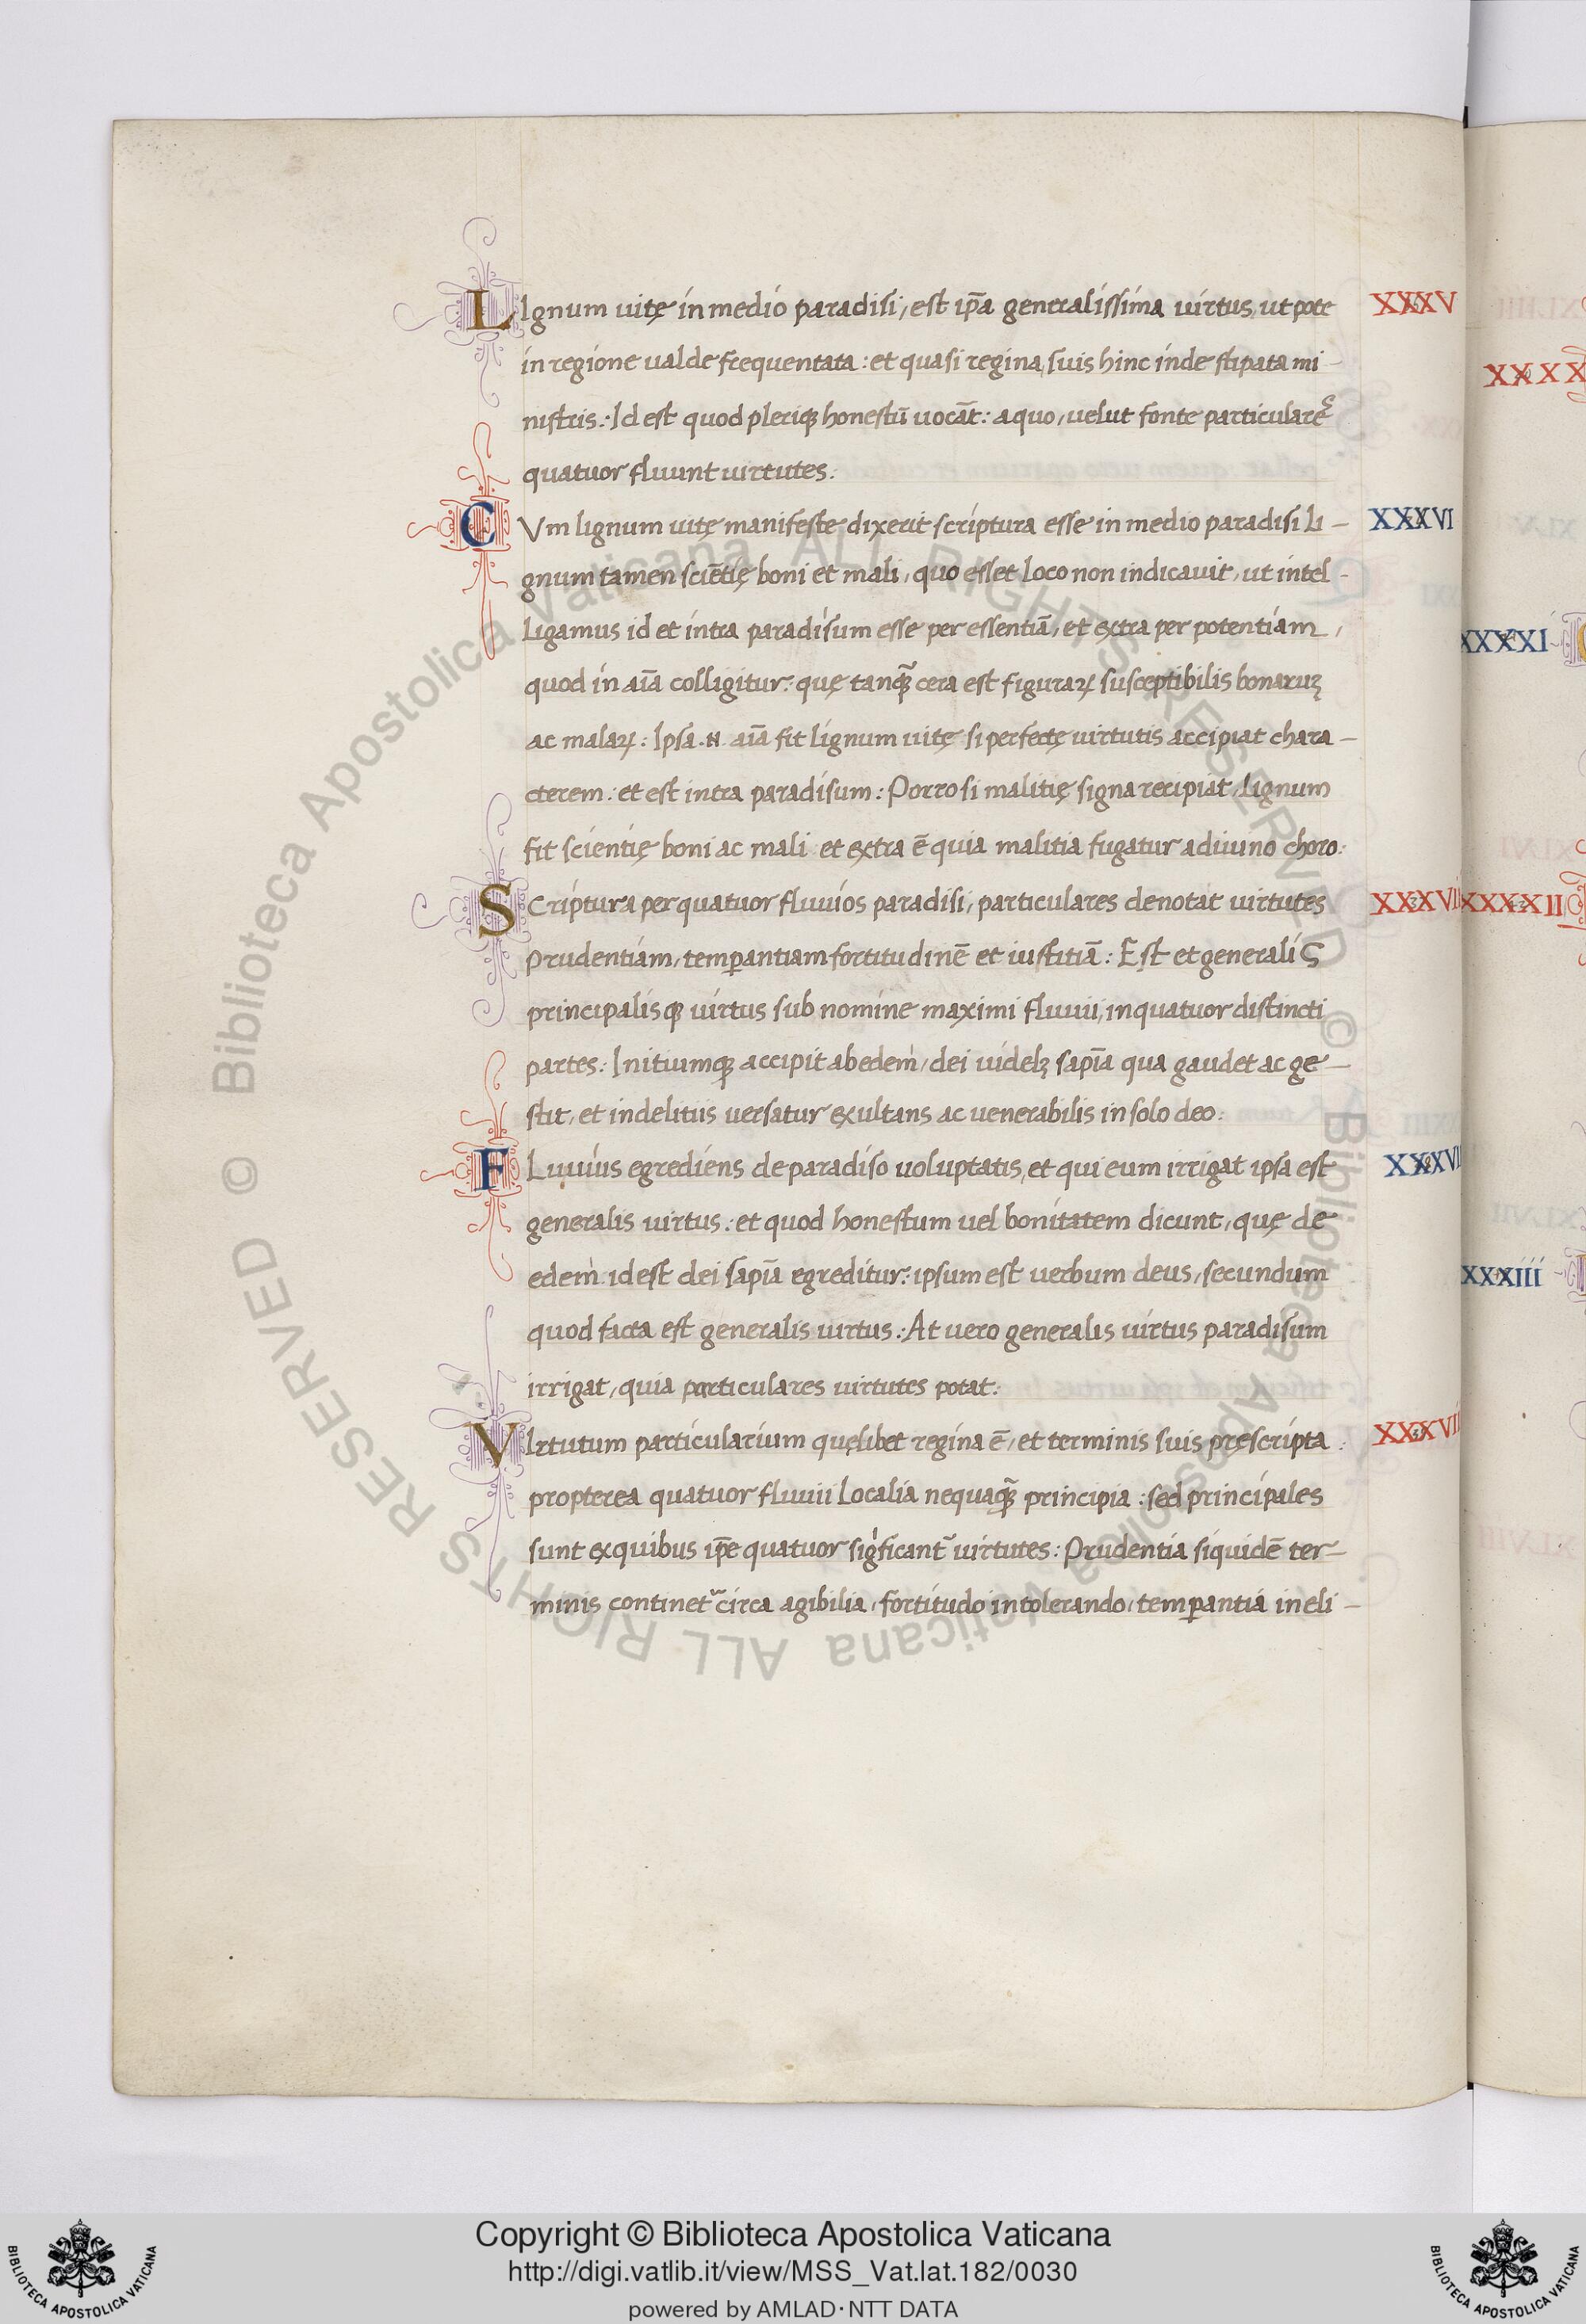 LIgnum uitę in medio paradisi, est ip̃a generalissima uirtus, ut pote XXXV
in regione ualde frequentata: et quasi regina suis hinc inde stipata mi-
nistris: Id est quod pleriqꝫ honestũ uocãt: a quo, uelut fonte particulares
quatuor fluunt uirtutes:
CVm lignum uitę manifeste dixerit scriptura esse in medio paradisi Li- XXXVI
gnum tamen sciẽtię boni et mali, quo esset loco non indicauit, ut intel-
Ligamus id et intra paradisum esse per essentiã, et extra per potentiam,
quod in aĩa colligitur: quę tanqꝫ̃ cera est figuraꝝ susceptibilis bonaruꝫ
ac malaꝝ: Ipsa .N. aĩa fit lignum uitę si perfectę uirtutis accipiat chara-
cterem: et est intra paradisum: Porro si malitię signa recipiat, Lignum
fit scientię boni ac mali et extra ẽ quia malitia fugatur a diuino choro:
SCriptura per quatuor fluuios paradisi, particulares denotat uirtutes XXXVII
prudentiam, temꝑantiam fortitudinẽ et iustitiã: Est et generaliS
principalisqꝫ uirtus sub nomine maximi fluuii, in quatuor distincti
partes: Initiumqꝫ accipit ab edem, dei uidelꝫ sapĩa qua gaudet ac ge-
stit, et in delitiis uersatur exultans ac uenerabilis in solo deo:
FLuuius egrediens de paradiso uoluptatis, et qui eum irrigat ipsa est XXXVII
generalis uirtus: et quod honestum uel bonitatem dicunt, quę de
edem idest dei sapĩa egreditur: ipsum est uerbum deus, secundum
quod facta est generalis uirtus: At uero generalis uirtus paradisum
irrigat, quia particulares uirtutes potat:
VIrtutum particularium quęlibet regina ẽ, et terminis suis pręscripta: XXXVII
propterea quatuor fluuii Localia nequaqꝫ̃ principia: sed principales
sunt ex quibus ip̃e quatuor sigficant᷑ uirtutes: Prudentia siquidẽ ter-
minis continet᷑ circa agibilia, fortitudo in tolerando, temꝑantia in eli-
XXXX
XXXXI
XXXXII
XXXIII
© Biblioteca Apostolica Vaticana ALL RIGHTS RESERVED © Biblioteca Apostolica Vaticana ALL RIGHTS RESERVED
Copyright © Biblioteca Apostolica Vaticana
http://digi.vatlib.it/view/MSS_Vat.lat.182/0030
powered by AMLAD·NTT DATA
BIBLIOTECA APOSTOLICA VATICANA
BIBLIOTECA APOSTOLICA VATICANA